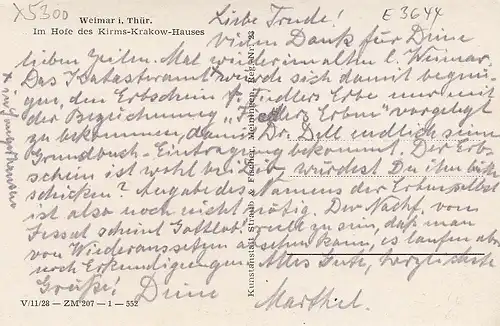 X5300
E 3644
Weimar i. Thür.
Im Hofe des Kirms-Krakow-Hauses
Liebe Trude!
Vielen Dank für Deine
lieben Zeilen. Mal wieder im alten l. Weimar.
Das Katasteramt würde sich damit begnü-
gen, den Erbschein f. Fidlers Erbe nur mit
der Bezeichnung "Fidlers Erben" vorgelegt
zu bekommen, damit Dr. Dell endlich seine
Grundbuch-Eintragung bekommt. Der Erb-
schein ist wohl bei Dir würdest Du ihn bitte
schicken? Angabe des Namens der Erben selbst
ist also noch nicht nötig. Der Nachf. von
Fessel scheint Gottlob reell zu sein, daß man
von Wiederaussetzen absehen kann, es laufen aber
noch Erkundigungen Alles Gute, herzlichste
Grüße! Deine Marthel.
+ in
Kunstanstalt Straub & Fischer, Meiningen, Reg.-Nr. 23
V/11/28 — ZM 207 — 1 — 552